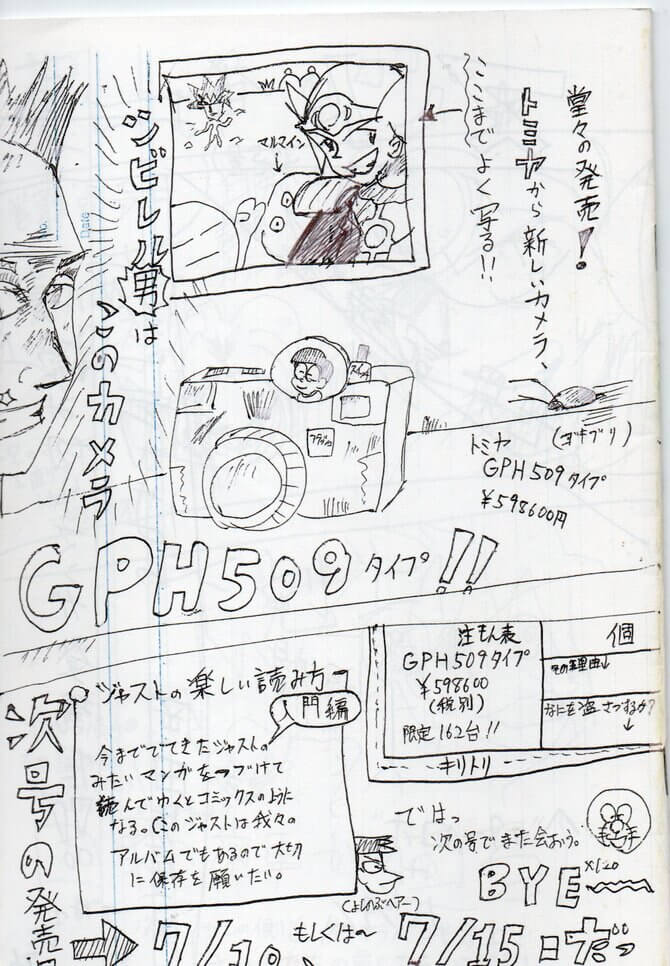 堂々の発売!
トミヤから新しいカメラ、
ここまでよく写る!!
マルマイン
シビレル男は
このカメラ
スイッチ
フラッシュ
(ゴキブリ)
トミヤ
GPH509タイプ
¥598600円
GPH509タイプ!!
注もん表
GPH509タイプ
¥598600
(税別)
限定162台!!
個
その理由↓
なにを盗さつするか?
↓
キリトリ
ジャストの楽しい読み方
入門編
今まででてきたジャストの
みたいマンガをつづけて
読んでゆくとコミックスのように
なる。(このジャストは我々の
アルバムでもあるので大切
に保存を願いたい。
(よしのぶヘアー)
ではっ
次の号でまた会おう。
BYE〜
次号の発売
→7/10、もしくは〜7/15:だっ